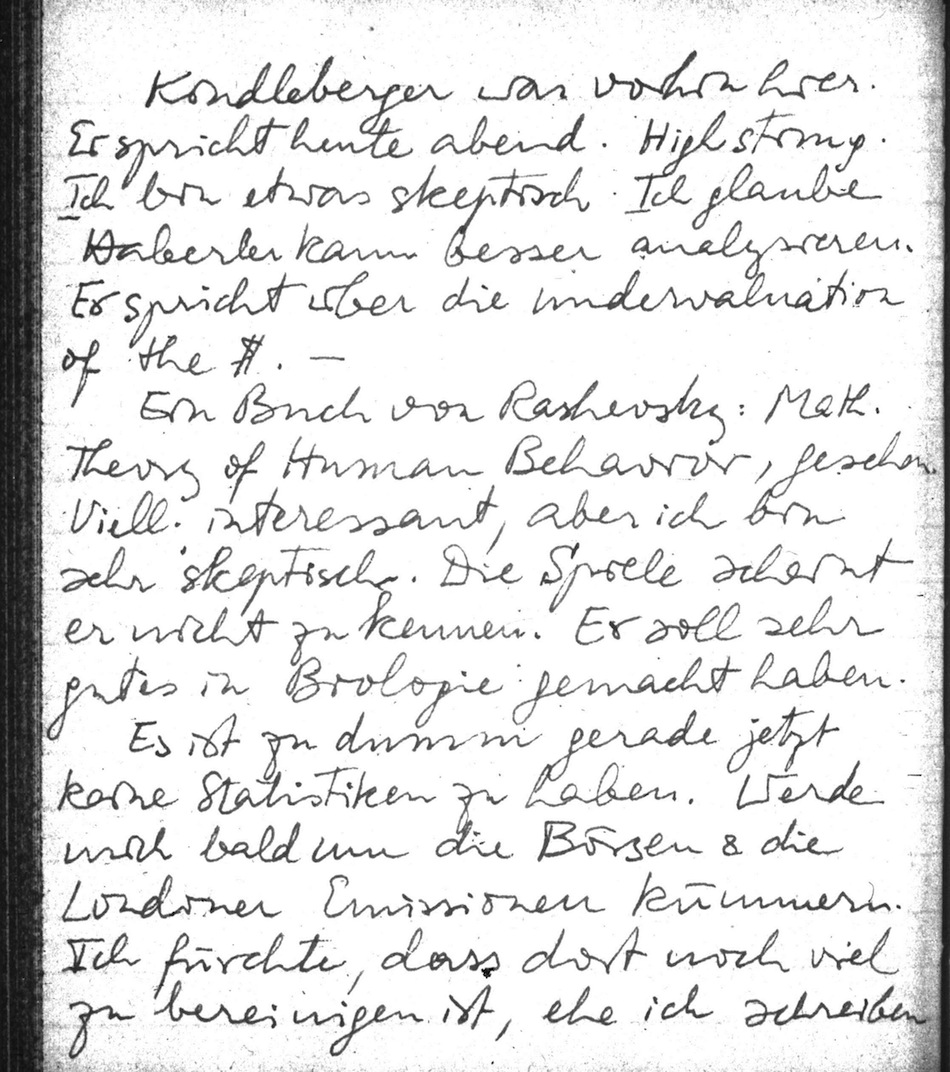 Kindleberger war vorhin hier.
Er spricht heute abend. High strung.
Ich bin etwas skeptisch. Ich glaube
Haberler kann besser analysieren.
Er spricht über die undervaluation
of the $. —
Ein Buch von Rashevsky: Math.
Theory of Human Behavior, gesehen.
Viell. interessant, aber ich bin
sehr skeptisch. Die Spiele scheint
er nicht zu kennen. Er soll sehr
gutes in Biologie gemacht haben.
Es ist zu dumm gerade jetzt
keine Statistiken zu haben. Werde
mich bald um die Börsen & die
Londoner Emissionen kümmern.
Ich fürchte, dass dort noch viel
zu bereinigen ist, ehe ich schreiben